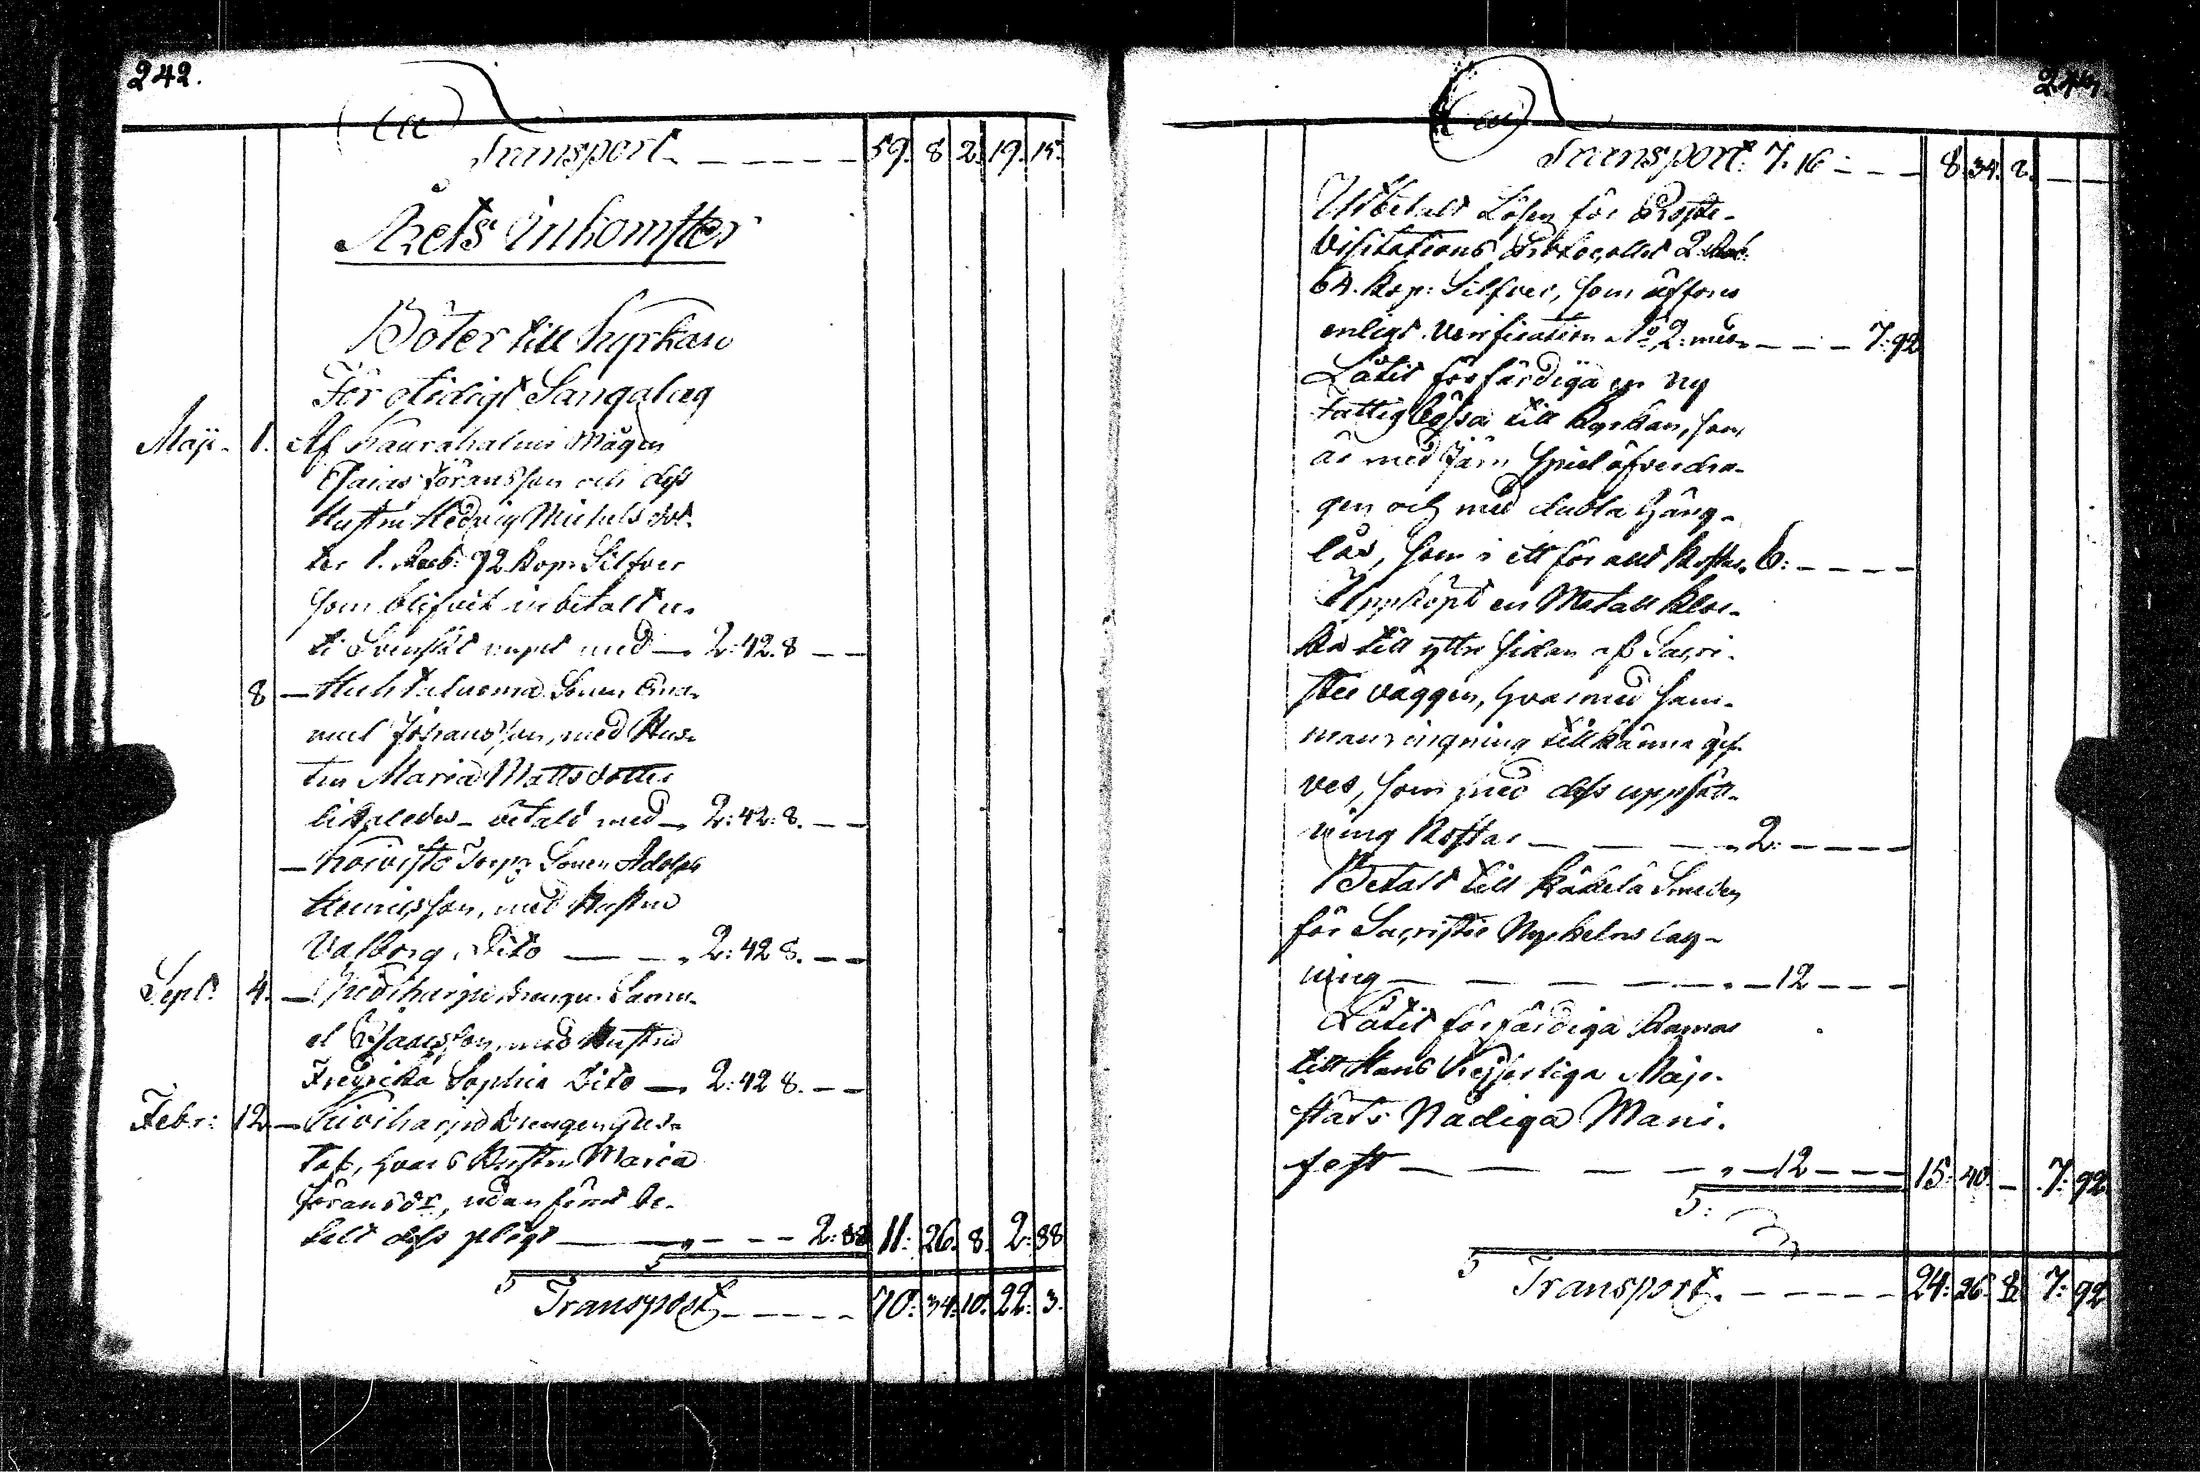 242.
Transport. – – – – – 59. 8 2. 19. 15.
Årets Inkomster
Böter till Kyrkan
För otidigt Sängalag
Maji. 1. Af Kaurahalmi Mågen
Esaias Jöransson och dess
Hustru Hedvig Michelsdot-
ter 1. Rub: 92 kop: Silfver
som blifvit inbetalt u-
ti Svenskt mynt med – 2:42.8 – –
8 – Huhtaluoma Sonen Ema-
nuel Johansson, med Hus-
tru Maria Mattsdotter
likaledes betalt med – 2:42:8. – –
– Koivisto Torp: Sonen Adolph
Henricsson, med Hustru
Valborg, Dito – – 2:42 8. – –
Sept: 4. – drengen Samu-
el Esaiasson, med Hustru
Fredricka Sophia Dito – 2:42 8. – –
Febr: 12. – Kiviharju drengen Gus-
taf, hvars Hustru Maria
Jöransdr, be-
talt dess plägt – – – – 2:88 11: 26. 8. 2:88
Transport – – – – – 70: 34: 10. 22: 3.
Transport: 7. 16 – – – 8. 34. 2. – –
Utbetalt Lösen för Proste-
Visitations Protocollet 2 Rub:
64. kop: Silfver, som
enligt Verification No 2: – – – 7:92
Låtit förfärdiga en ny
Fattigbössa till Kyrkan, som
är med Järn Spick öfverdra-
gen och med dubla Häng-
lås, som i ett för allt kostar 6: – – – –
Uppköpt en Metall kloc-
ka till yttre sidan af Sacri-
stie väggen, hvarmed sam-
manringning tillkänna gif-
ves, som med dess uppsätt-
ning kostar – – – 2: – – – –
Betalt till Käkelä Smeden
för Sacristie Nyckelns lag-
ning – – – – – 12 – – –
Låtit förfärdiga Ramar
till Hans Kejserliga Maje-
stäts Nådiga Mani-
fest – – – – – 12 – – – 15: 40. – 7: 92.
Transport. – – – – – 24: 26. 2. 7: 92